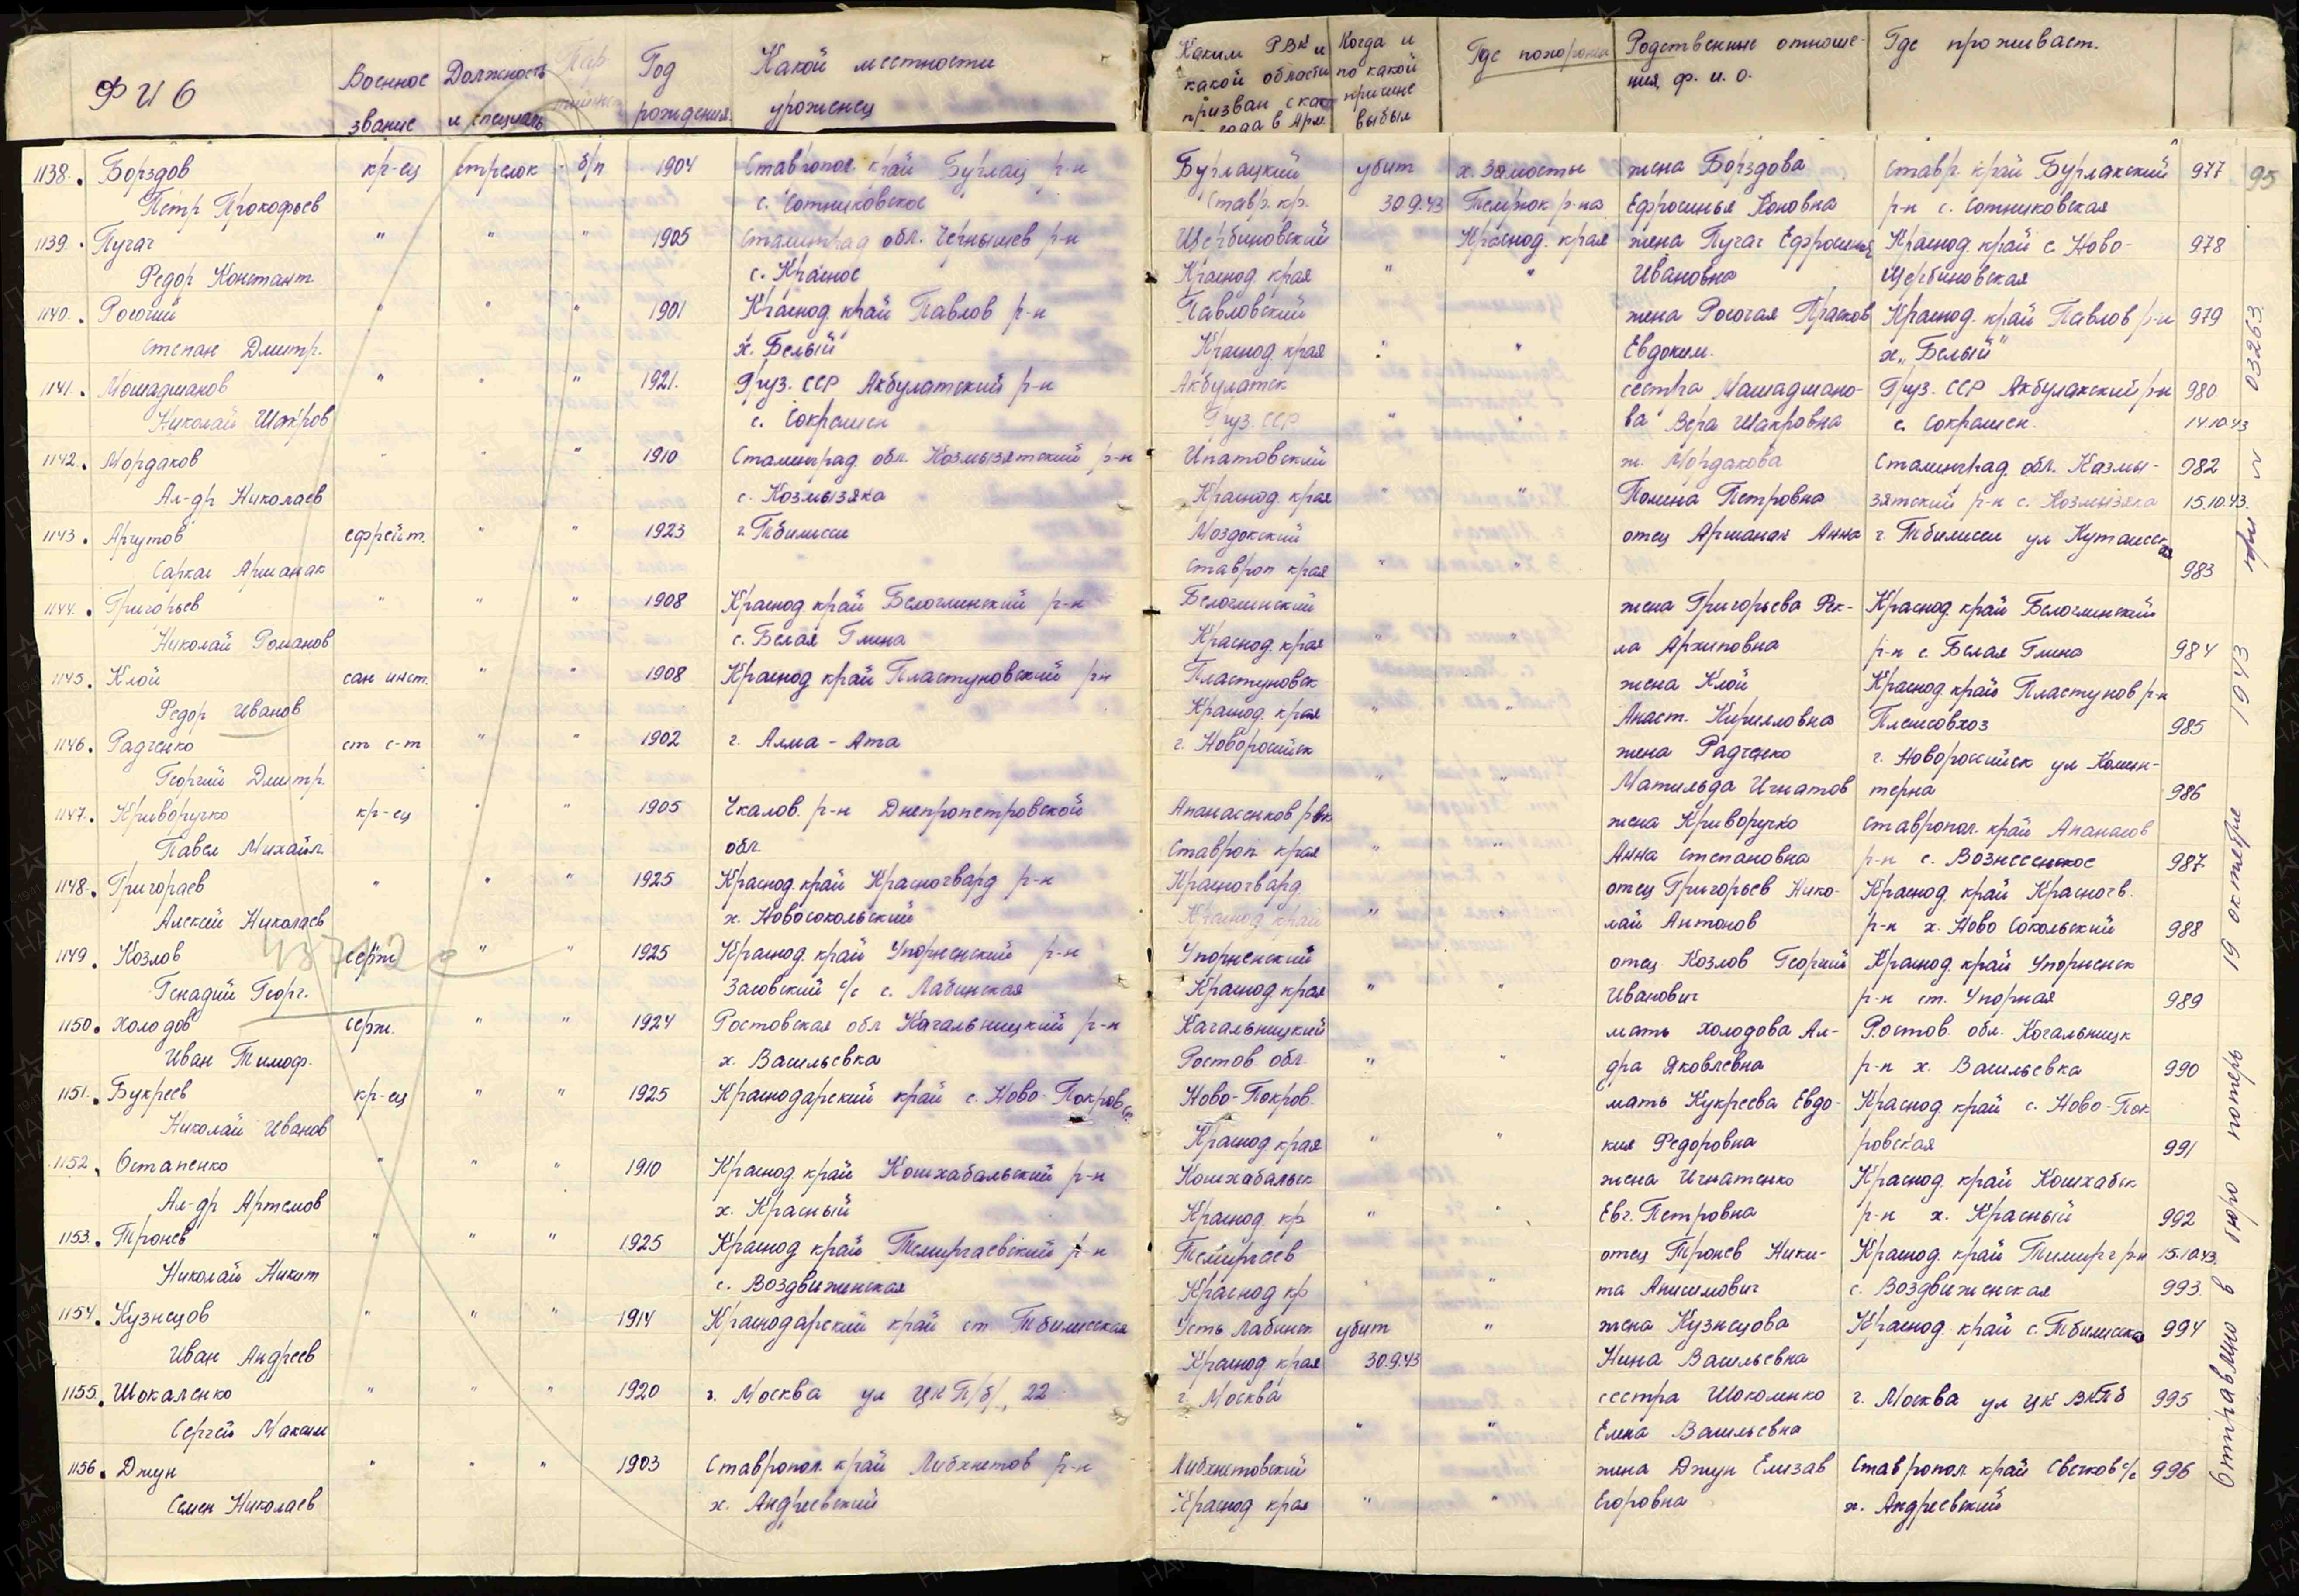 Ф И О
Военное звание
Должность и специаль
Год рождения
Какой местности уроженец
Каким РВК и какой области призван с как года в Арм.
Когда и по какой причине выбыл
Где похоронен
Родственные отноше- ния, ф. и. о.
Где проживает.
1138. Борздов кр-ец стрелок б/п 1904 Ставропол. край Бурлац р-н Бурлацкий убит х. Замосты жена Борздова Ставр. край Бурлакский 977 95
Петр Прокофьев с. Сотниковское Ставр. кр. 30.9.43 Темрюк р-на Ефросинья Коновна р-н с. Сотниковская
1139. Пугач " " " 1905 Сталинград обл. Чернышев р-н Щербиновский Краснод. края жена Пугач Ефросинья Краснод. край с. Ново- 978
Федор Констант с. Красное Краснод. края " " Ивановна Щербиновская
1140. Рогочий " " " 1901 Краснод. край Павлов р-н Павловский жена Рогочая Прасков Краснод. край Павлов р-н 979
Степан Дмитр. х. "Белый" Краснод. края " " Евдоким. х. "Белый"
1141. Машадианов " " " 1921. Груз. ССР Акбулатский р-н Акбулатск сестра Машадиано- Груз. ССР Акбулакский р-н 980
Николай Шакров с. Сокрашен Груз. ССР " " ва Вера Шакровна с. Сокрашен. 14.10.43
1142. Мордаков " " " 1910 Сталинград. обл. Козмызятский р-н Ипатовский ж. Мордакова Сталинград. обл. Казмы- 982
Ал-др Николаев с. Козмызяка Краснод. края " " Полина Петровна зятский р-н с. Козмызяка 15.10.43.
1143. Аргутов ефрейт. " " 1923 г. Тбилиси Моздокский отец Аршанак Анна г. Тбилиси ул Кутаисск
Саркас Аршанак Ставроп края " " 983
1144. Григорьев " " " 1908 Краснод. край Белоглинский р-н Белоглинский жена Григорьева Фек- Краснод. край Белоглинский
Николай Романов с. Белая Глина Краснод. края " " ла Архиповна р-н с. Белая Глина 984
1145. Клой сан инст. " " 1908 Краснод край Пластуновский р-н Пластуновск жена Клой Краснод. край Пластунов р-н
Федор Иванов Краснод. края " " Анаст. Кирилловна Племсовхоз 985
1146. Радченко ст с-т " " 1902 г. Алма-Ата г. Новоросийск жена Радченко г. Новороссийск ул Комин-
Георгий Дмитр. " " Матильда Игнатов терна 986
1147. Криворучко кр-ец " " 1905 Чкалов. р-н Днепропетровской Апанасенков рвк жена Криворучко Ставропол. край Апанасов
Павел Михайл обл. Ставроп. края " " Анна Степановна р-н с. Вознесенское 987
1148. Григораев " " " 1925 Краснод. край Красногвард р-н Красногвард. отец Григорьев Нико- Краснод. край Красногв.
Алексей Николаев х. Новосокольский Краснод. край " " лай Антонов р-н х. Ново Сокольский 988
1149. Козлов серж " " 1925 Краснод. край Упорненский р-н Упорненский отец Козлов Георгий Краснод. край Упорненск
Генадий Георг. Засовский с/с с. Лабинская Краснод. края " " Иванович р-н ст. Упорная 989
1150. Холодов серж. " " 1924 Ростовская обл Кагальницкий р-н Кагальницкий мать Холодова Ал- Ростов. обл. Когальницк
Иван Тимоф. х. Васильевка Ростов. обл. " " дра Яковлевна р-н х. Васильевка 990
1151. Букреев кр-ец " " 1925 Краснодарский край с. Ново-Покровс. Ново-Покров. мать Кукреева Евдо- Краснод. край с. Ново-Пок
Николай Иванов Краснод края " " кия Федоровна ровская 991
1152. Остапенко " " " 1910 Краснод. край Кошхабальский р-н Кошхабальск жена Игнатенко Краснод. край Кошхабск
Ал-др Артемов х. Красный Краснод. кр " " Евг. Петровна р-н х. Красный 992
1153. Тронев " " " 1925 Краснод край Темиргаевский р-н Темиргаев отец Тронев Ники- Краснод. край Тимирг р-н 15.10.43.
Николай Никит с. Воздвиженская Краснод кр " " та Анисимович с. Воздвиженская 993.
1154. Кузнецов " " " 1914 Краснодарский край ст Тбилисская Усть Лабинск убит " жена Кузнецова Краснод. край с. Тбилисска 994
Иван Андреев Краснод края 30.9.43 Нина Васильевна
1155. Шокаленко " " " 1920 г. Москва ул ЦК П/б/, 22 г. Москва сестра Шоколенко г. Москва ул ЦК ВКПб 995
Сергей Максим " " Елена Васильевна
1156. Джун " " " 1903 Ставропол. край Либкнетов р-н Либкнетовский жена Джун Елизав Ставропол край Свечков с/с 996
Семен Николаев х. Андреевский Краснод края " " Егоровна х. Андреевский
43712с
Отправлено в бюро потерь 19 октября 1943 при № 03263